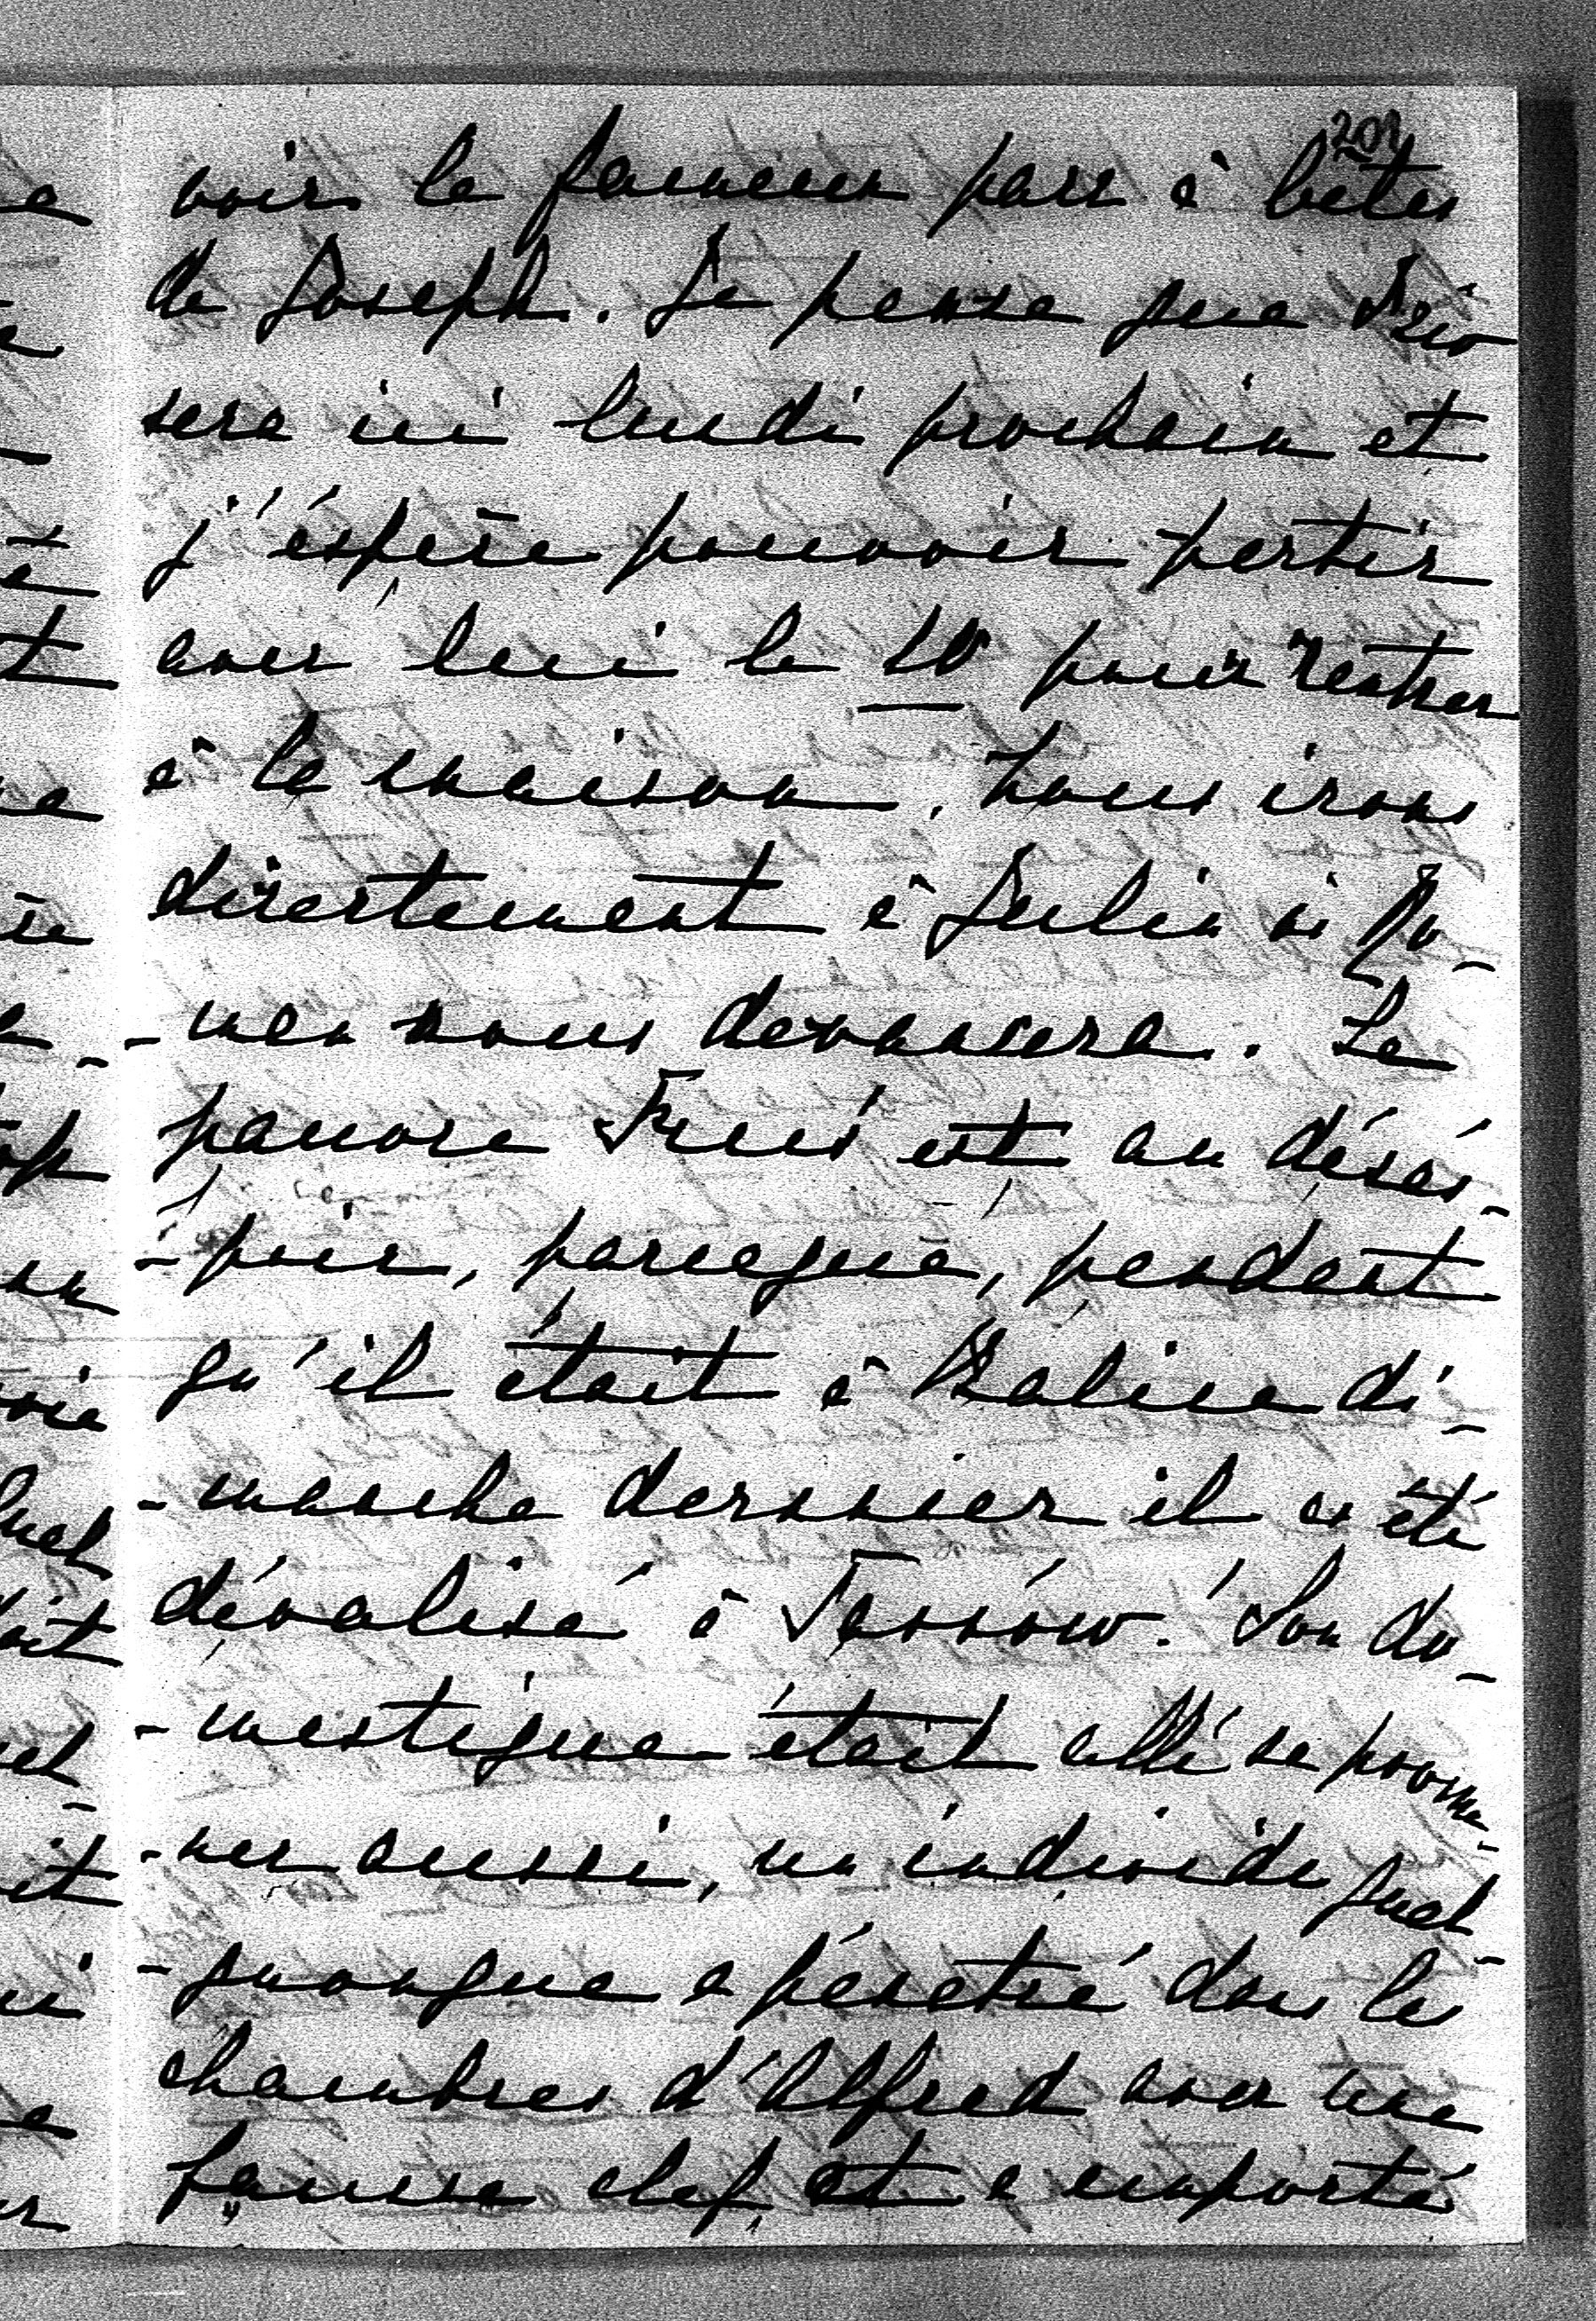 201
voir le fameux parc à bêtes
de Joseph. Je pense que
sera ici lundi prochain et
j'éspère pouvoir partir
avec lui le 10 pour rentrer
à la maison. Nous irons
directement à Julin si Ro-
-men nous devancera. Le
pauvre est au désés-
-poir, parceque, pendant
qu'il était à Izalica di-
-manche dernier il a été
dévalisé à Tarnów! Son do-
-mestique était allé se prome-
-ner aussi, un individu quel-
-quonque a pénetré dans les
chambres d'Alfred avec une
fausse clef, et a emporté